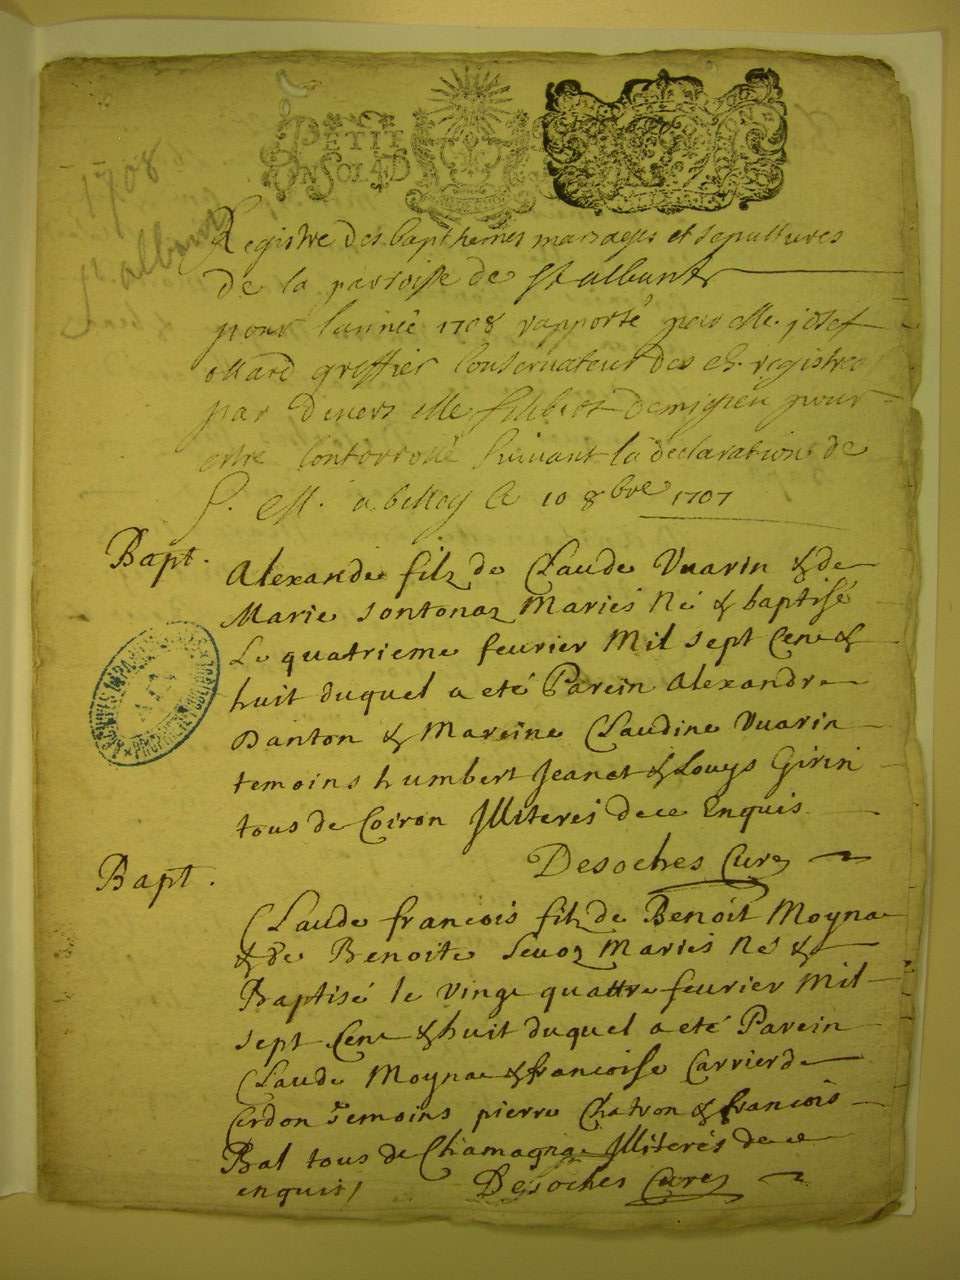 PETIT
UN SOL 4 D
1708
St alban
Registre des bapthemes mariages et sepultures
de la paroisse de St albunt
pour lannée 1708 rapporté par Me. josef
ollard greffier Conservateur des registres
par devers Me filibert demigieu pour
estre Controrollé suivant la declaration de
S. M. a belley le 10 8bre 1707
Bapt.
Alexandre filz de Claude Vuarin & de
Marie sontonaz Mariés Né & baptisé
Le quatrieme feurier Mil sept Cent &
huit duquel a eté Parein Alexandre
Danton & Mareine Claudine Vuarin
temoins humbert Jeanet & Louys Girin
tous de Coiron Illiterés de ce Enquis
Desoches Curé
Bapt.
Claude francois filz de Benoit Moyna
& de Benoite sevoz Mariés Nes &
Baptisé le Vingt quattre feurier Mil
sept Cent & huit duquel a eté Parein
Claude Moynat & francoise Carrier de
Cerdon Temoins pierre Chatron & francois
Bal tous de Chamagnat Illiterés de ce
enquis
Desoches Curé